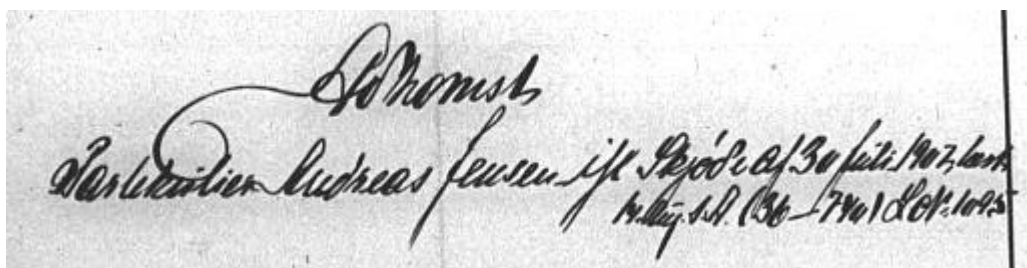 Adkomst
Partikulier Andreas Jensen ifl. Skjøde af 30 Juli 1907, 
14. Aug. s. A. (36 – 740)